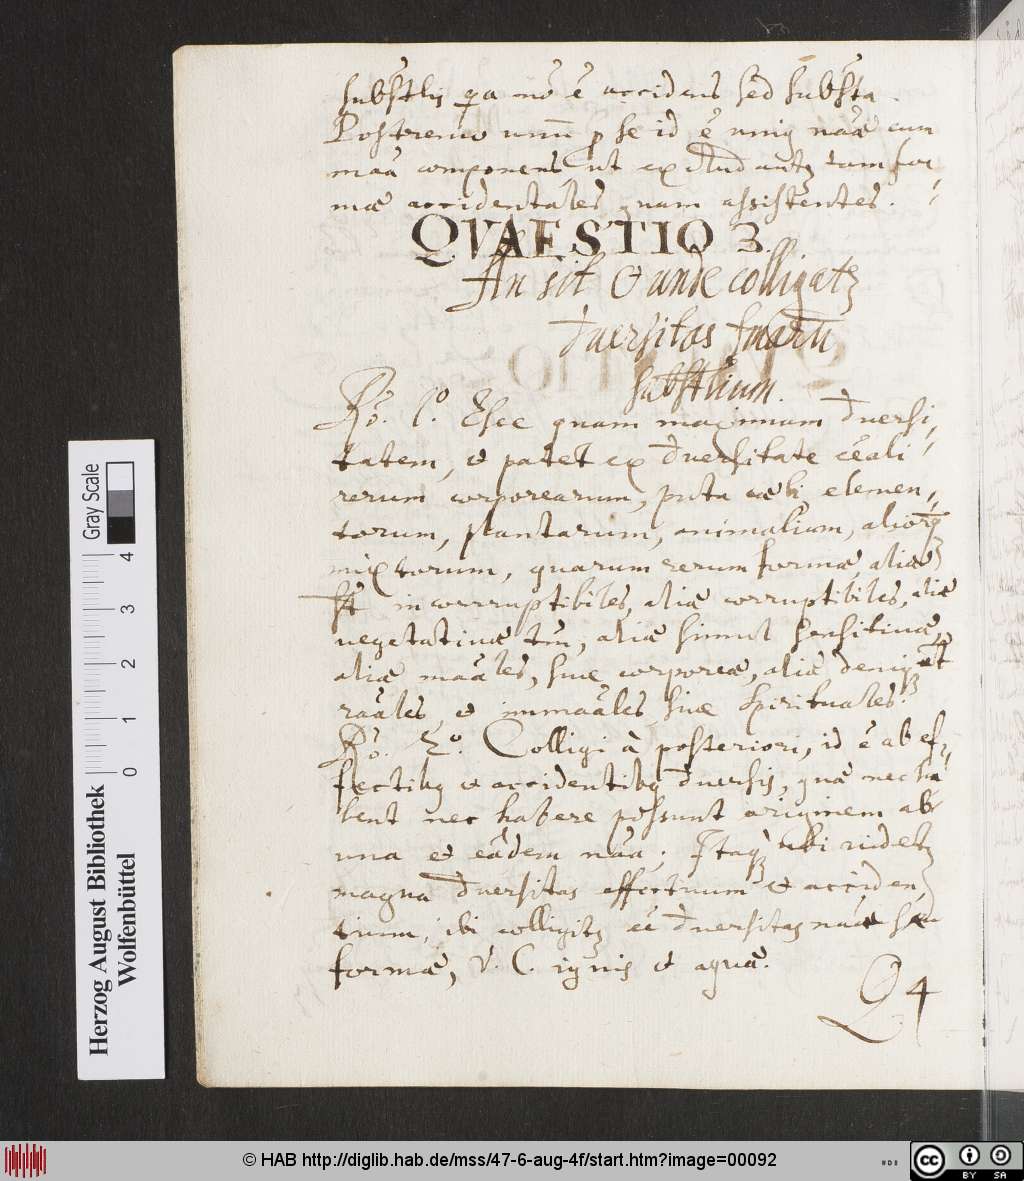 substlis qa nō ē accidens sed substa.
Postremo unū p se id ē unig naā cum
maā componens ut excludantz tam for,,
mae accidentales quam assistentes.
QVAESTIO 3.
An sit & unde colligatz
dversitas fmarū
substlium.
Ro. 1o. Esse quam maximum dversi,,
tatem, et patet ex dversitate
rerum corporearum, puta caeli, elemen,,
torum, plantarum, animalium, aliorq
mixtorum, quarum rerum formae aliae
st incorruptibiles, aliae corruptibiles, aliae
vegetativae tm, aliae simul sensitivae,
aliae maāles, sive corporeae, aliae deniq
raāles, et immaāles sive spirituales.
Ro. 2o. Colligi à posteriori, id ē ab ef,,
fectibq et accidentibq dversis, quae nec ha
bent nec habere possunt originem ab
una et eādem naā; Itaq ubi videtz
magna dversitas effectuum et acciden,,
tium, ibi colligitz eē dversitas naae seu
formae, v. C. ignis et aquae.
Q 4
Herzog August Bibliothek
Wolfenbüttel
0 1 2 3 4
Gray Scale
© HAB http://diglib.hab.de/mss/47-6-aug-4f/start.htm?image=00092
cc BY SA